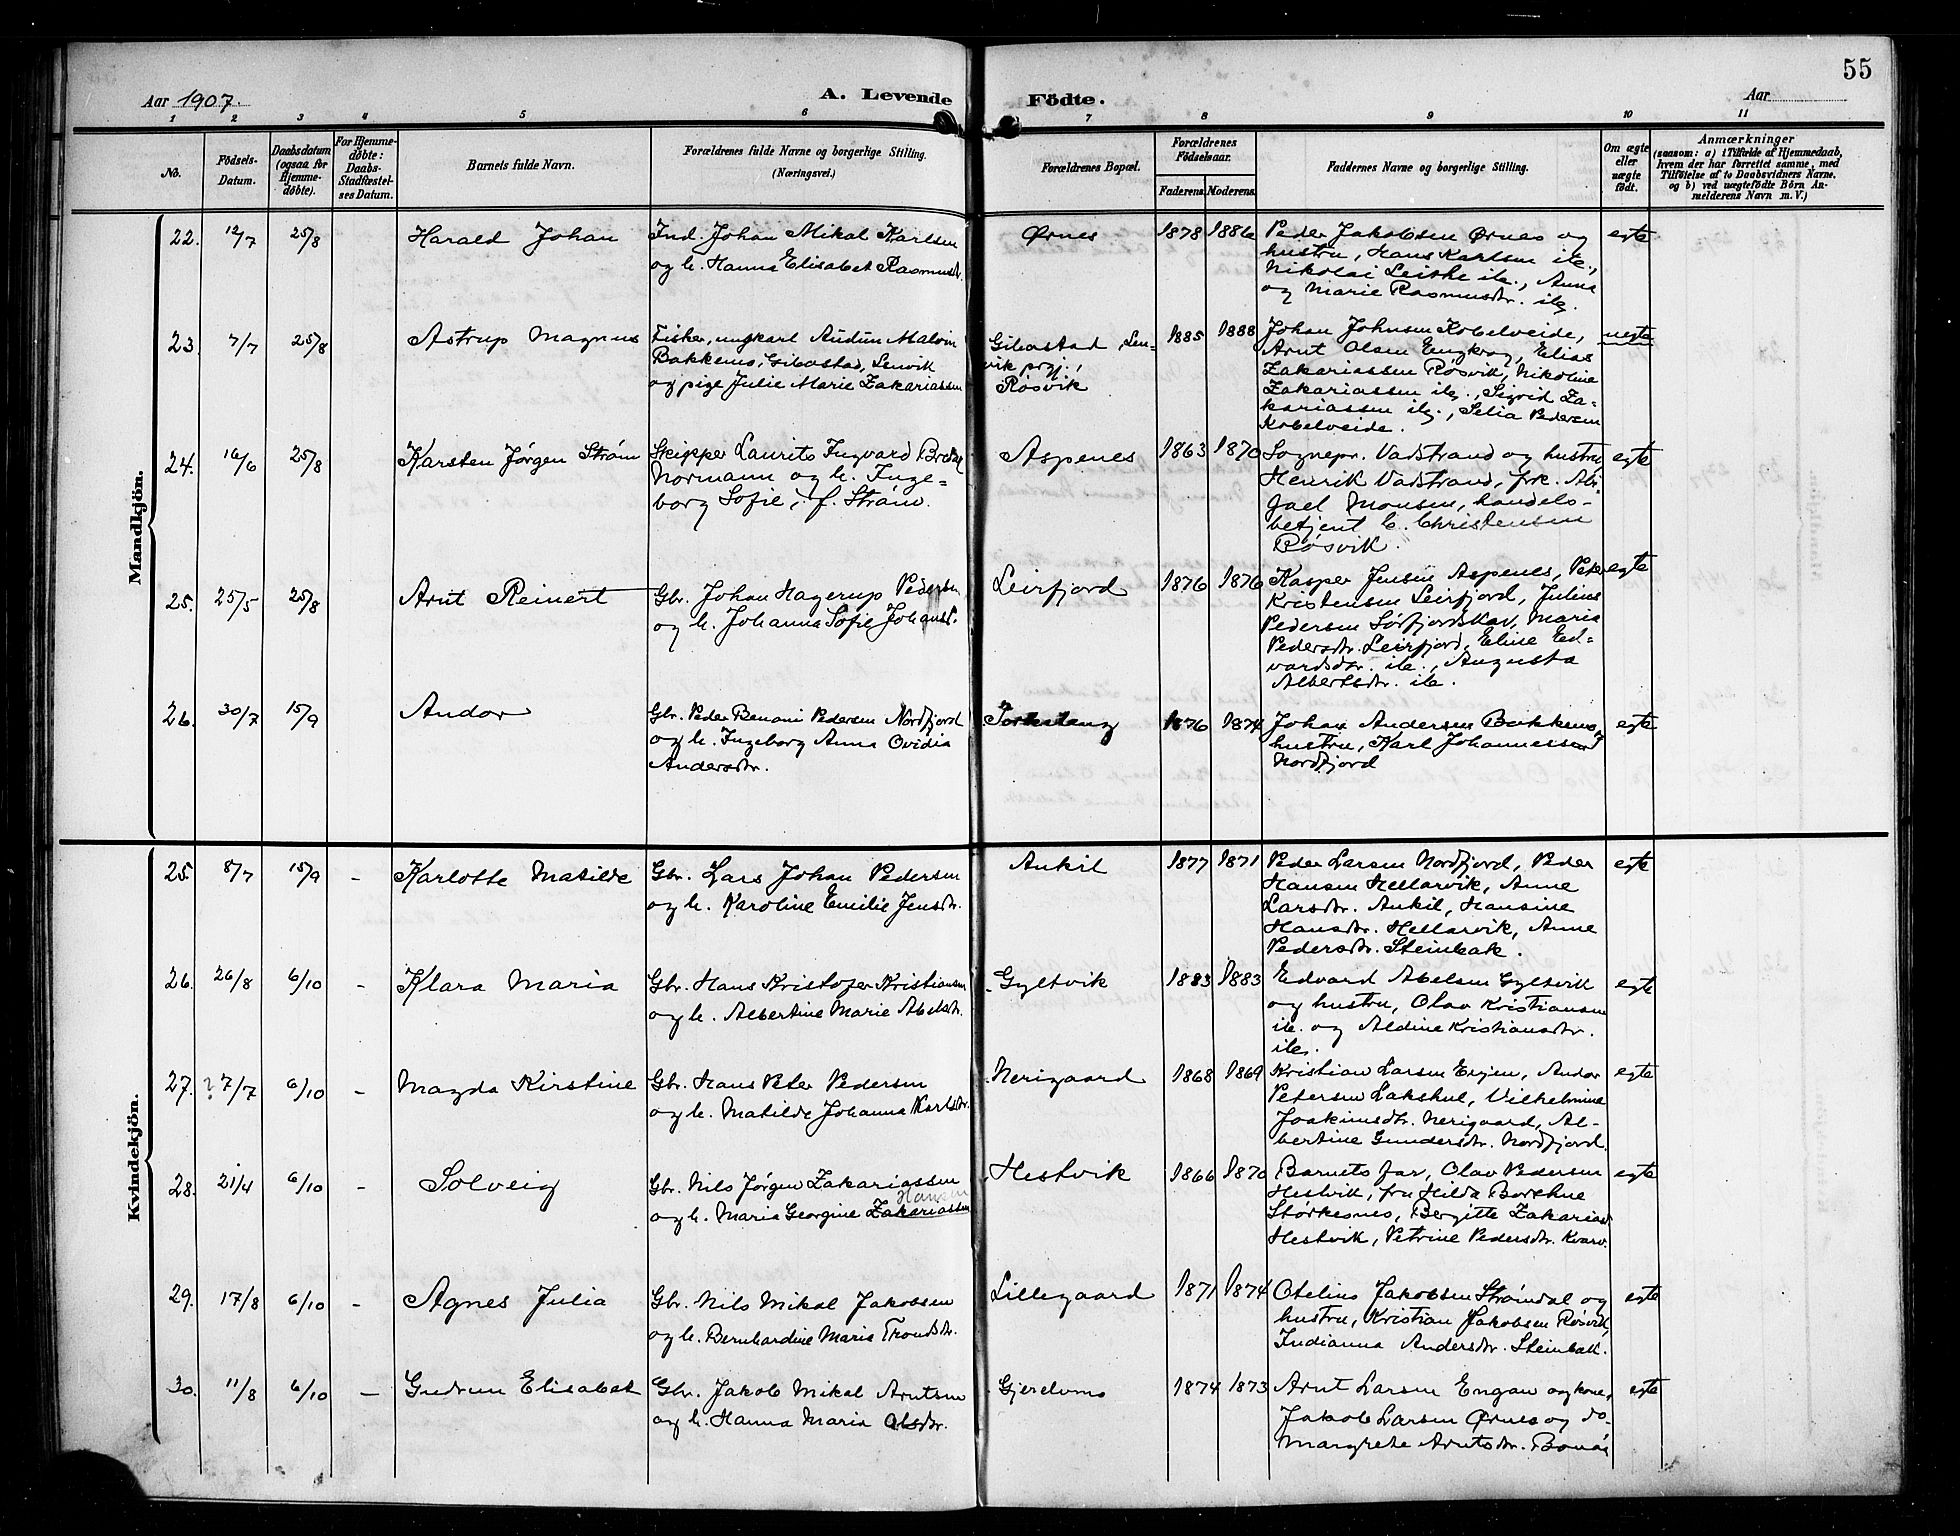 55
Aar 1907.
A. Levende Födte.
Aar
1 2 3 4 5 6 7 8 9 10 11
No.
Födsels-
Datum.
Daabsdatum
(ogsaa for
Hjemme-
døbte).
For Hjemme-
døbte:
Daabs-
Stadfæstel-
ses Datum.
Barnets fulde Navn.
Forældrenes fulde Navne og borgerlige Stilling.
(Næringsvei.)
Forældrenes Bopæl.
Forældrenes
Födselsaar.
Faderens. Moderens.
Faddernes Navne og borgerlige Stilling.
Om ægte
eller
uægte
födt.
Anmærkninger
(saasom: a) i Tilfælde af Hjemmedaab,
hvem der har forrettet samme, med
Tilföielse af to Daabsvidners Navne,
og b) ved uægtefödte Börn An-
melderens Navn m. V.)
Mandkjön.
22. 12/7 25/8
Harald Johan
Ind. Johan Mikal Karlsen
og h. Hanna Elisabet Rasmusdr.
Ørnes
1878 1886
Peder Jakobsen Ørnes og
hustru, Hans Karlsen ib.,
Nikolai Leithe ib., Anna
og Marie Rasmusdr. ib.
egte
23. 7/7 25/8
Astrup Magnus
Fisker, ungkarl Audun Malvin
Bakkemo, Gibostad, Lenvik
og pige Julie Marie Zakariassen
Gibostad, Len-
vik prgj.,
Røsvik
1885 1888
Johan Johnsen Kobelveide,
Arnt Olsen Engkrog, Elias
Zakariassen Røsvik, Nikoline
Zakariassen ib., Sigrid Za-
kariassen ib., Selia Pedersen
Kobelveide.
uegte
24. 16/6 25/8
Karsten Jørgen Strøm
Skipper Laurits Ingvard Bredal
Normann og h. Inge-
borg Sofie, f. Strøm.
Aspenes
1863 1870
Sognepr. Vadstrand og hustru,
Henrik Vadstrand, frk. Abi-
gael Monsen, handels-
betjent C. Christensen
Røsvik.
egte
25. 25/5 25/8
Arnt Reinert
Gbr. Johan Hagerup Pedersen
og h. Johanna Sofie Johansdr.
Leirfjord
1876 1876
Kasper Jensen Aspenes, Peter
Kristensen Leirfjord, Julius
Pedersen Sørfjordskav, Maria
Pedersdr. Leirfjord, Eline Ed-
vardsdr. ib., Augusta
Albertsdr. ib.
egte
26. 30/7 15/9
Andor
Gbr. Peder Benoni Pedersen Nordfjord
og h. Ingeborg Anna Ovidia
Andersdr.
1876 1874
Johan Andersen Bakkemo og
hustru, Karl Johannessen
Nordfjord
egte
Kvindekjön.
25. 8/7 15/9 -
Karlotte Matilde
Gbr. Lars Johan Pedersen
og h. Karoline Emilie Jensdr.
Ankil
1877 1871
Peder Larsen Nordfjord, Peder
Hansen Hellarvik, Anne
Larsdr. Ankil, Hansine
Hansdr. Hellarvik, Anne
Pedersdr. Steinbak.
egte
26. 26/8 6/10 -
Klara Maria
Gbr. Hans Kristofer Kristiansen
og h. Albertine Marie Abelsdr.
Gyltvik
1883 1883
Edvard Abelsen Gyltvik
og hustru, Olav Kristiansen
ib. og Aldine Kristiansdr.
ib.
egte
27. ? 7/7 6/10 -
Magda Kirstine
Gbr. Hans Peter Pedersen
og h. Matilde Johanna Karlsdr.
Nerigaard
1868 1869
Kristian Larsen Erjen, Andor
Petersen Lakshul, Vilhelmine
Joakimsdr. Nerigaard, Al-
bertine Gundersdr. Nordfjord.
egte
28. 21/4 6/10 -
Solveig
Gbr. Nils Jørgen Zakariassen
Hansen
og h. Maria Georgine Zakariassen
Hestvik
1866 1870
Barnets far, Olav Pedersen
Hestvik, fru Hilda Borchue
Størkesnes, Bergitte Zakarias
Hestvik, Petrine Pedersdr. Kvarv.
egte
29. 17/8 6/10 -
Agnes Julia
Gbr. Nils Mikal Jakobsen
og h. Bernhardine Maria Trondsdr.
Lillegaard
1871 1874
Otelius Jakobsen Strøndal og
hustru, Kristian Jakobsen Røsvik,
Indianna Andersdr. Steinbak.
egte
30. 11/8 6/10 -
Gudrun Elisabet
Gbr. Jakob Mikal Arntsen
og h. Hanna Maria Olsdr.
Gjerdvms
1874 1873
Arnt Larsen Engan og kone,
Jakob Larsen Ørnes og do
Margrete Arntsdr. Bonås
egte